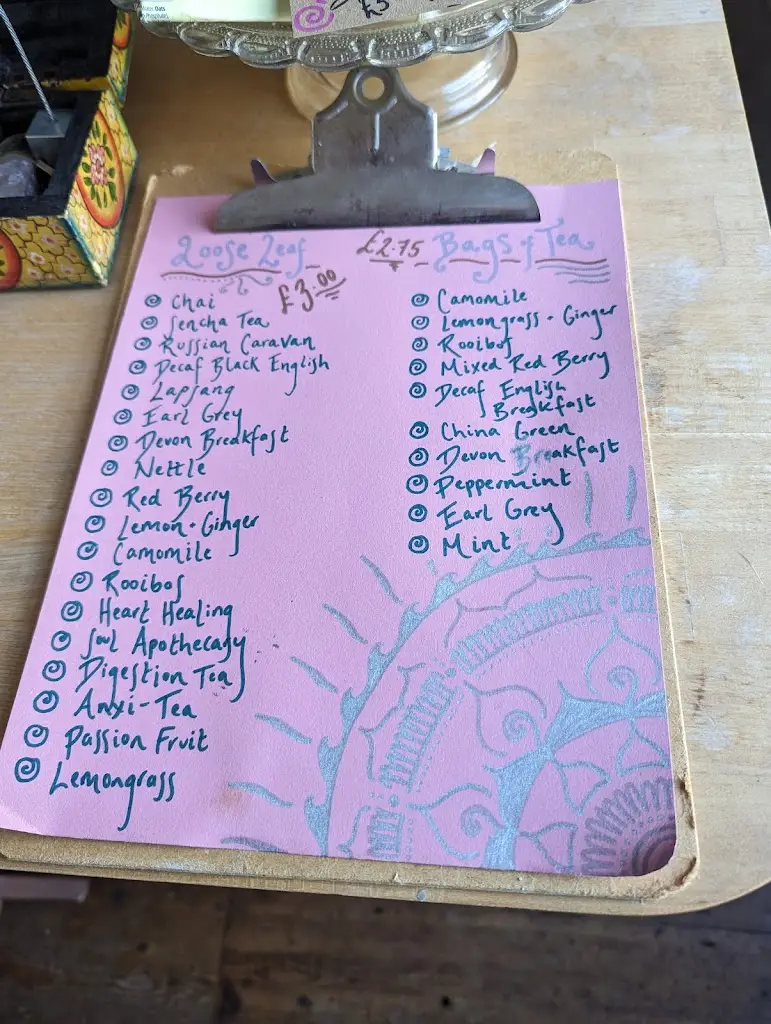 £3
Loose Leaf
£3.00
Chai
Sencha Tea
Russian Caravan
Decaf Black English
Lapsang
Earl Grey
Devon Breakfast
Nettle
Red Berry
Lemon + Ginger
Camomile
Rooibos
Heart Healing
Soul Apothecary
Digestion Tea
Anxi-Tea
Passion Fruit
Lemongrass
£2.75 Bags of Tea
Camomile
Lemongrass + Ginger
Rooibos
Mixed Red Berry
Decaf English
Breakfast
China Green
Devon Breakfast
Peppermint
Earl Grey
Mint